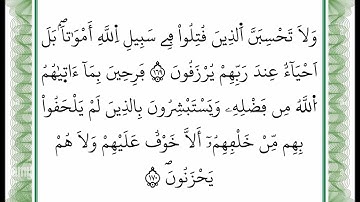 وَلَا تَحْسِبَنَّ اَلذِينَ قُتِلُواْ فِے سَبِيلِ اِ۬للَّهِ أَمْوَٰتاَۢۖ بَلَ
اَحْيَآءٌ عِندَ رَبِّهِمْ يُرْزَقُونَ ١٦٩ فَرِحِينَ بِمَآ ءَات۪يٰهُمُ
اُ۬للَّهُ مِن فَضْلِهِۦ وَيَسْتَبْشِرُونَ بِالذِينَ لَمْ يَلْحَقُواْ
بِهِم مِّنْ خَلْفِهِمُۥٓ أَلَّا خَوْفٌ عَلَيْهِمْ وَلَا هُمْ
يَحْزَنُونَۖ ١٧٠